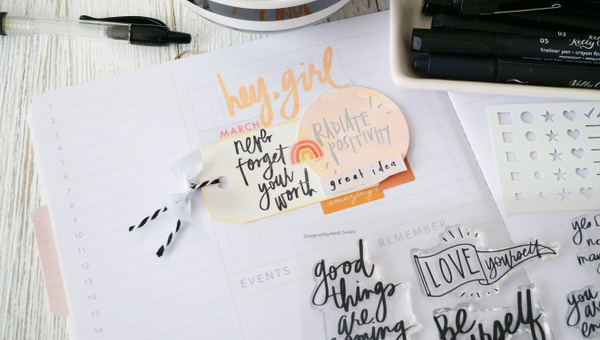 hey, girl
MARCH
never
forget
your
worth
RADIATE
POSITIVITY
great idea
amazing!
Designed by Heidi Swapp
EVENTS
REMEMBER
1
2
3
4
5
6
7
8
9
10
11
12
13
14
15
16
good
things
are
coming
LOVE yourself
Be yourself
yes
you
are
03
05
Kelly C
fineliner pen • crayon fi